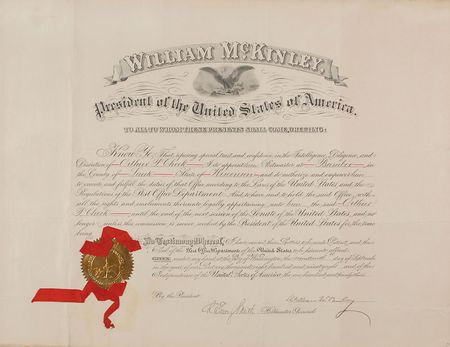 WILLIAM McKINLEY,
President of the United States of America.
TO ALL TO WHOM THESE PRESENTS SHALL COME, GREETING:
Know Ye, That, reposing special trust and confidence in the Intelligence, Diligence, and
Discretion of I do appoint him Postmaster at
in the County of State of Missouri and do authorize and empower him
to execute and fulfil the duties of that Office according to the Laws of the United States and the
Regulations of the Post Office Department. And to have and to hold the said Office, with
all the rights and emoluments thereunto legally appertaining, unto him, the said
until the end of the next session of the Senate of the United States, and no
longer, unless this commission be sooner revoked by the President of the United States for the time
being.
In Testimony Whereof, I have caused these Letters to be made Patent, and the
Seal of the Post Office Department of the United States to be hereunto affixed.
GIVEN under my hand at the City of Washington, the day of
in the year of our Lord one thousand eight hundred and ninety and of the
Independence of the United States of America the one hundred and
By the President:
William McKinley
Postmaster General.